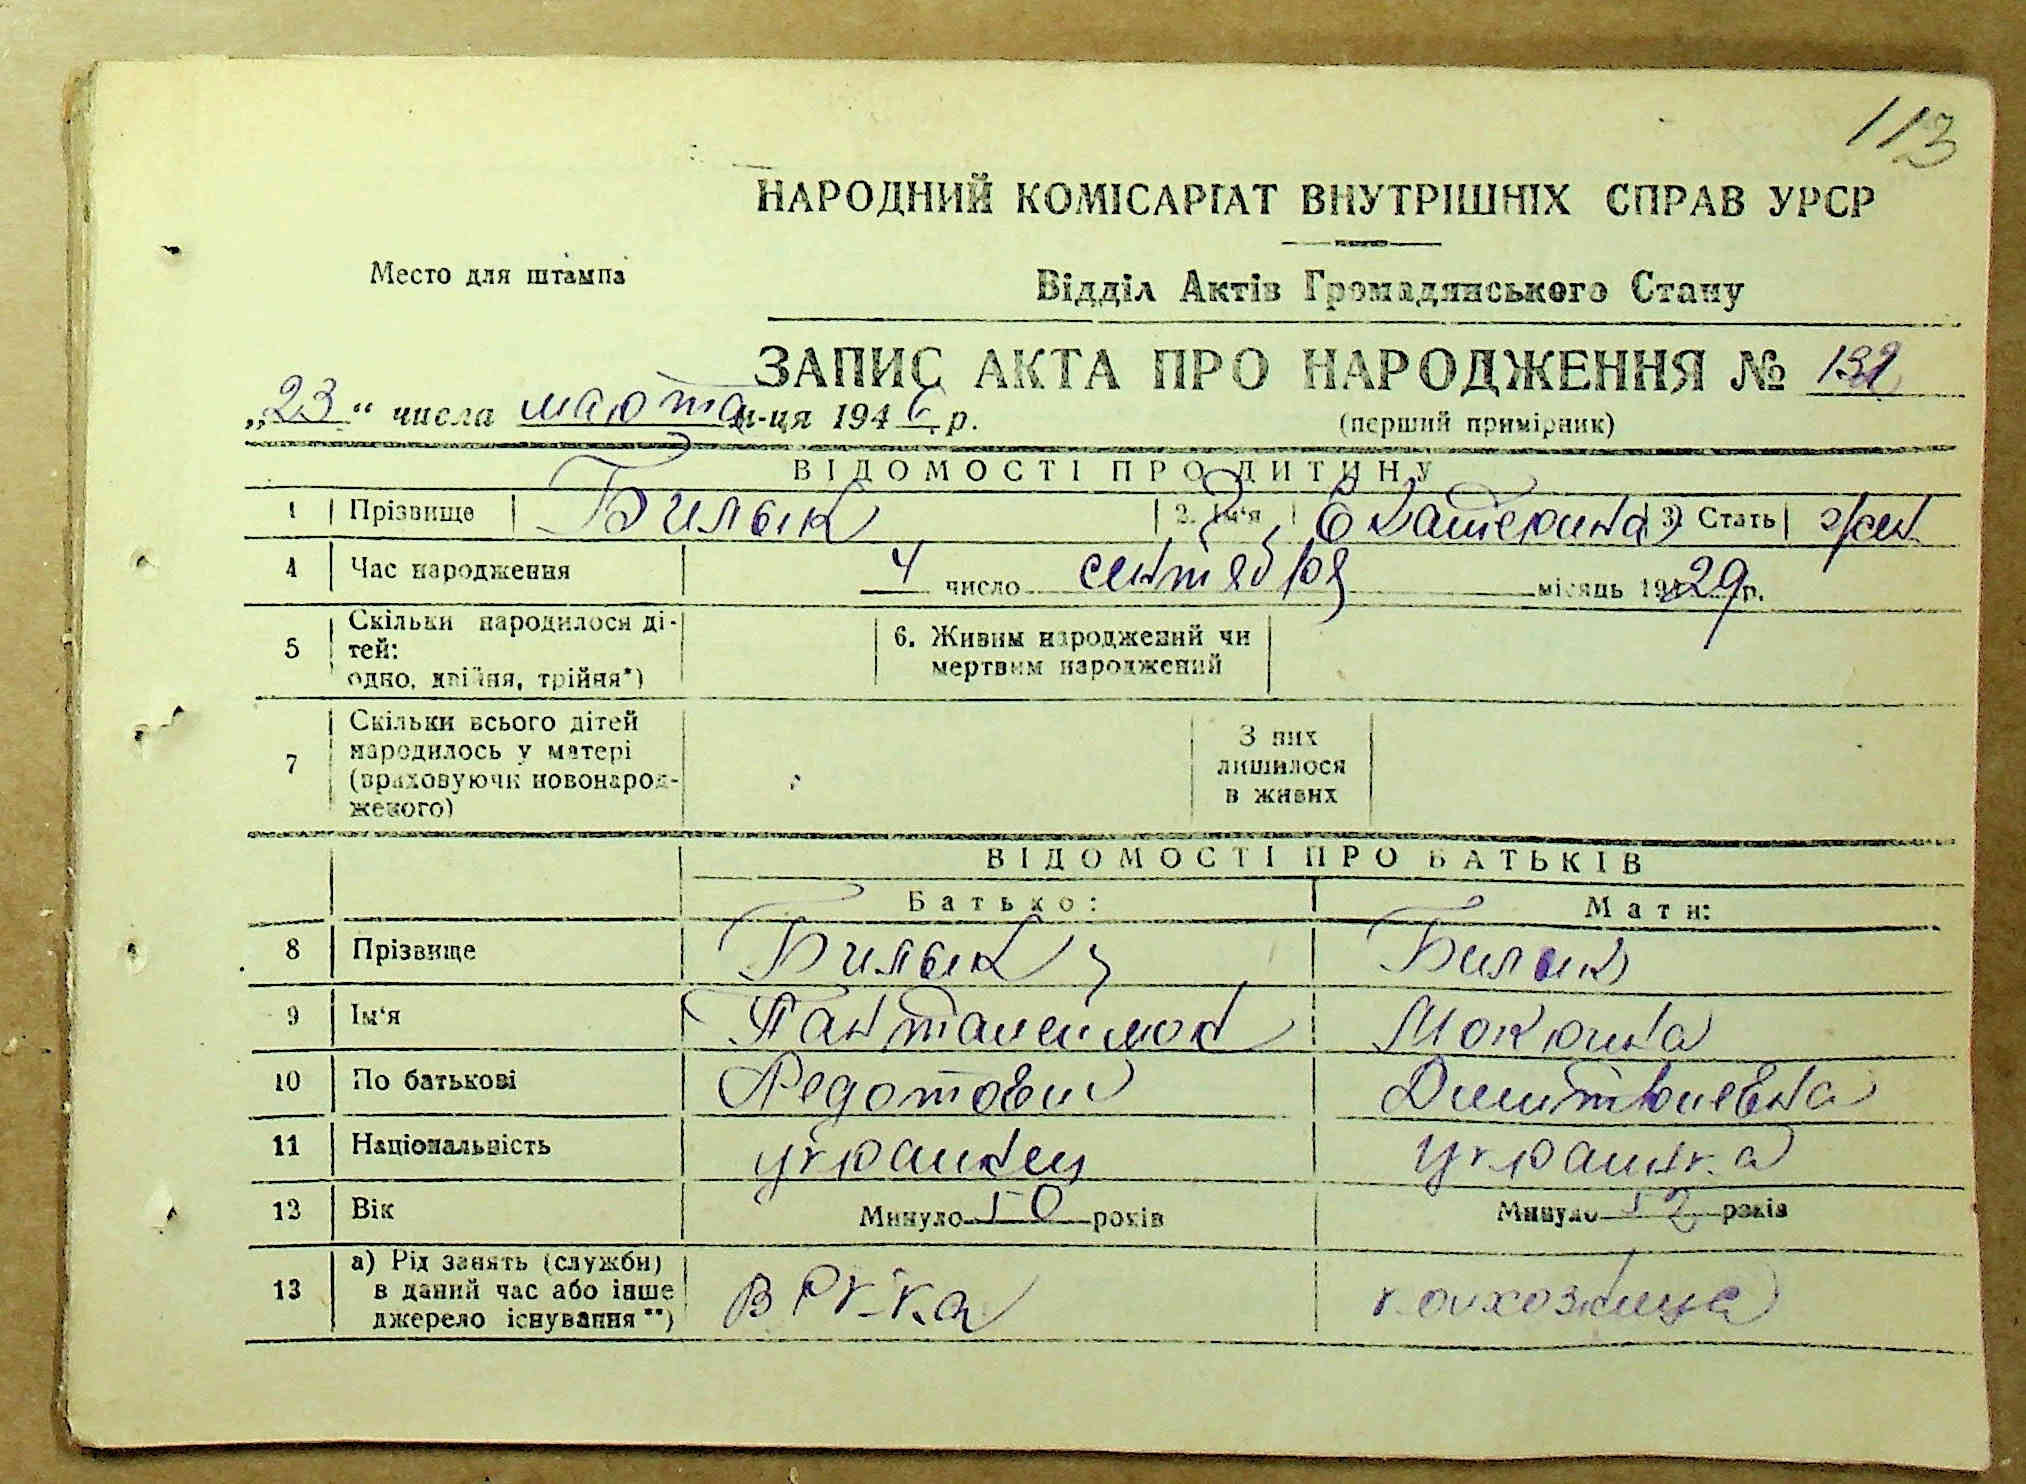 113
НАРОДНИЙ КОМІСАРІАТ ВНУТРІШНІХ СПРАВ УРСР
Место для штампа
Відділ Актів Громадянського Стану
ЗАПИС АКТА ПРО НАРОДЖЕННЯ № 132
„23“ числа марта м-ця 1946 р.
(перший примірник)
ВІДОМОСТІ ПРО ДИТИНУ
1 Прізвище Билык 2. Ім‘я Екатерина 3. Стать жен
4 Час народження 4 число сентября місяць 1929 р.
5 Скільки народилося дітей: одно, двійня, трійня*) 6. Живим народжений чи мертвим народжений
7 Скільки всього дітей народилось у матері (враховуючи новонародженого) З них лишилося в живих
ВІДОМОСТІ ПРО БАТЬКІВ
Батько: Мати:
8 Прізвище Билык Билык
9 Ім‘я Панталеимон Мокрина
10 По батькові Федотович Димитриевна
11 Національність украинец украинка
12 Вік Минуло 50 років Минуло 52 років
13 а) Рід занять (служби) в даний час або інше джерело існування **) в РККА колхозница